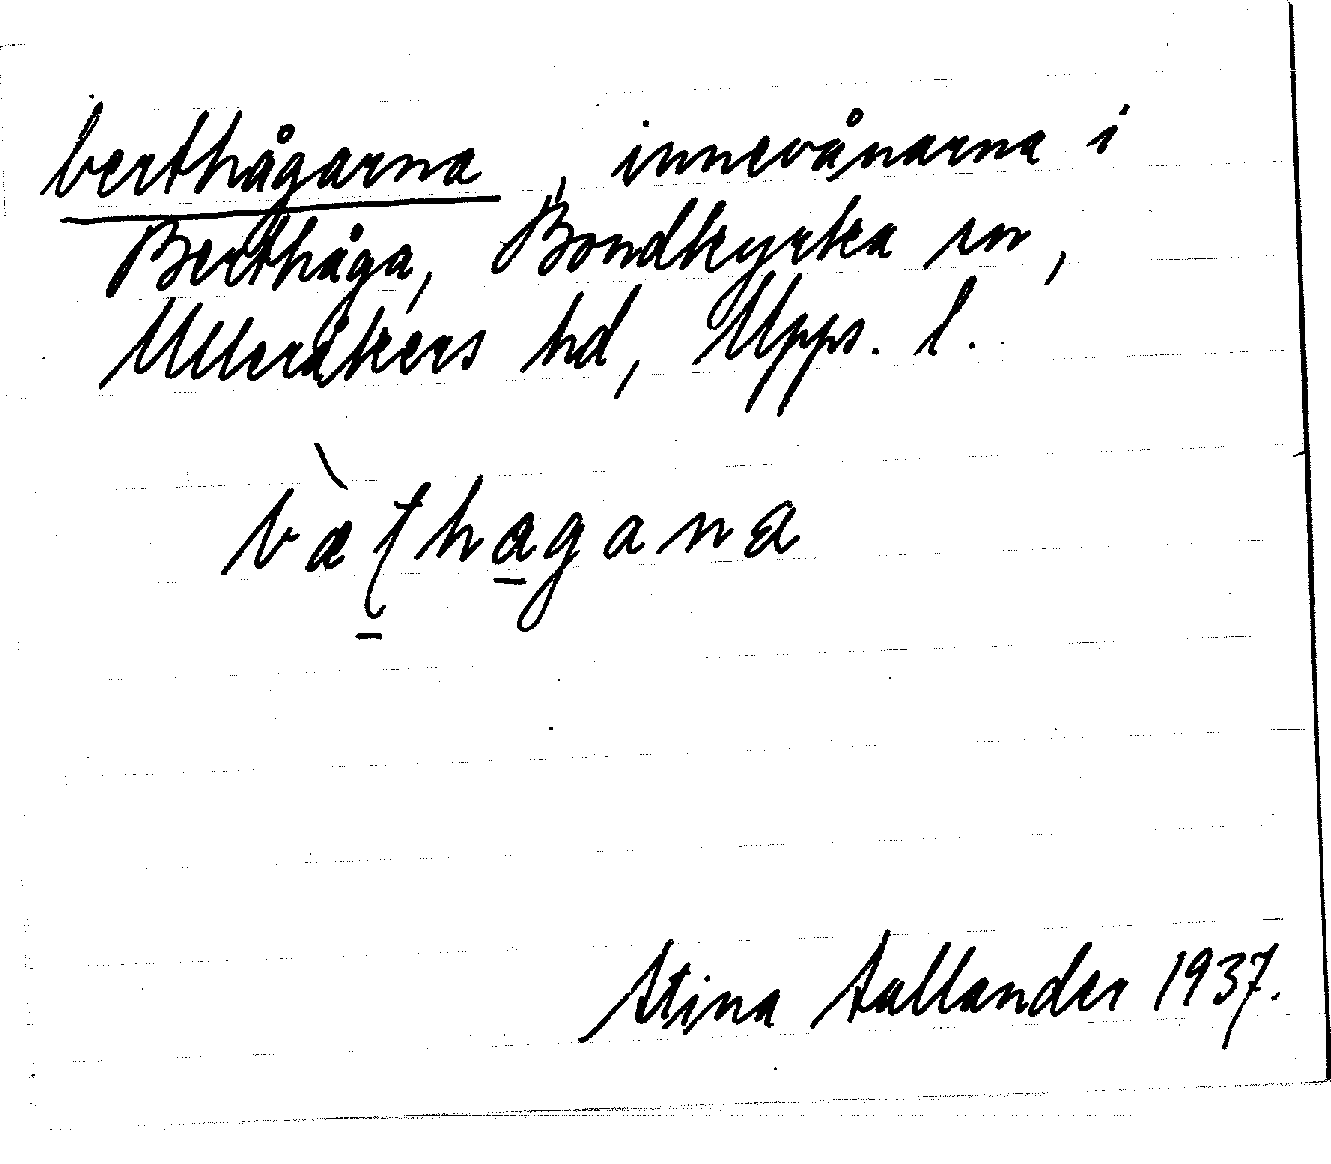 berthågarna, innevånarna i
Berthåga, Bondkyrka sn,
Ulleråkers hd, Upps. l.
Stina 1937.